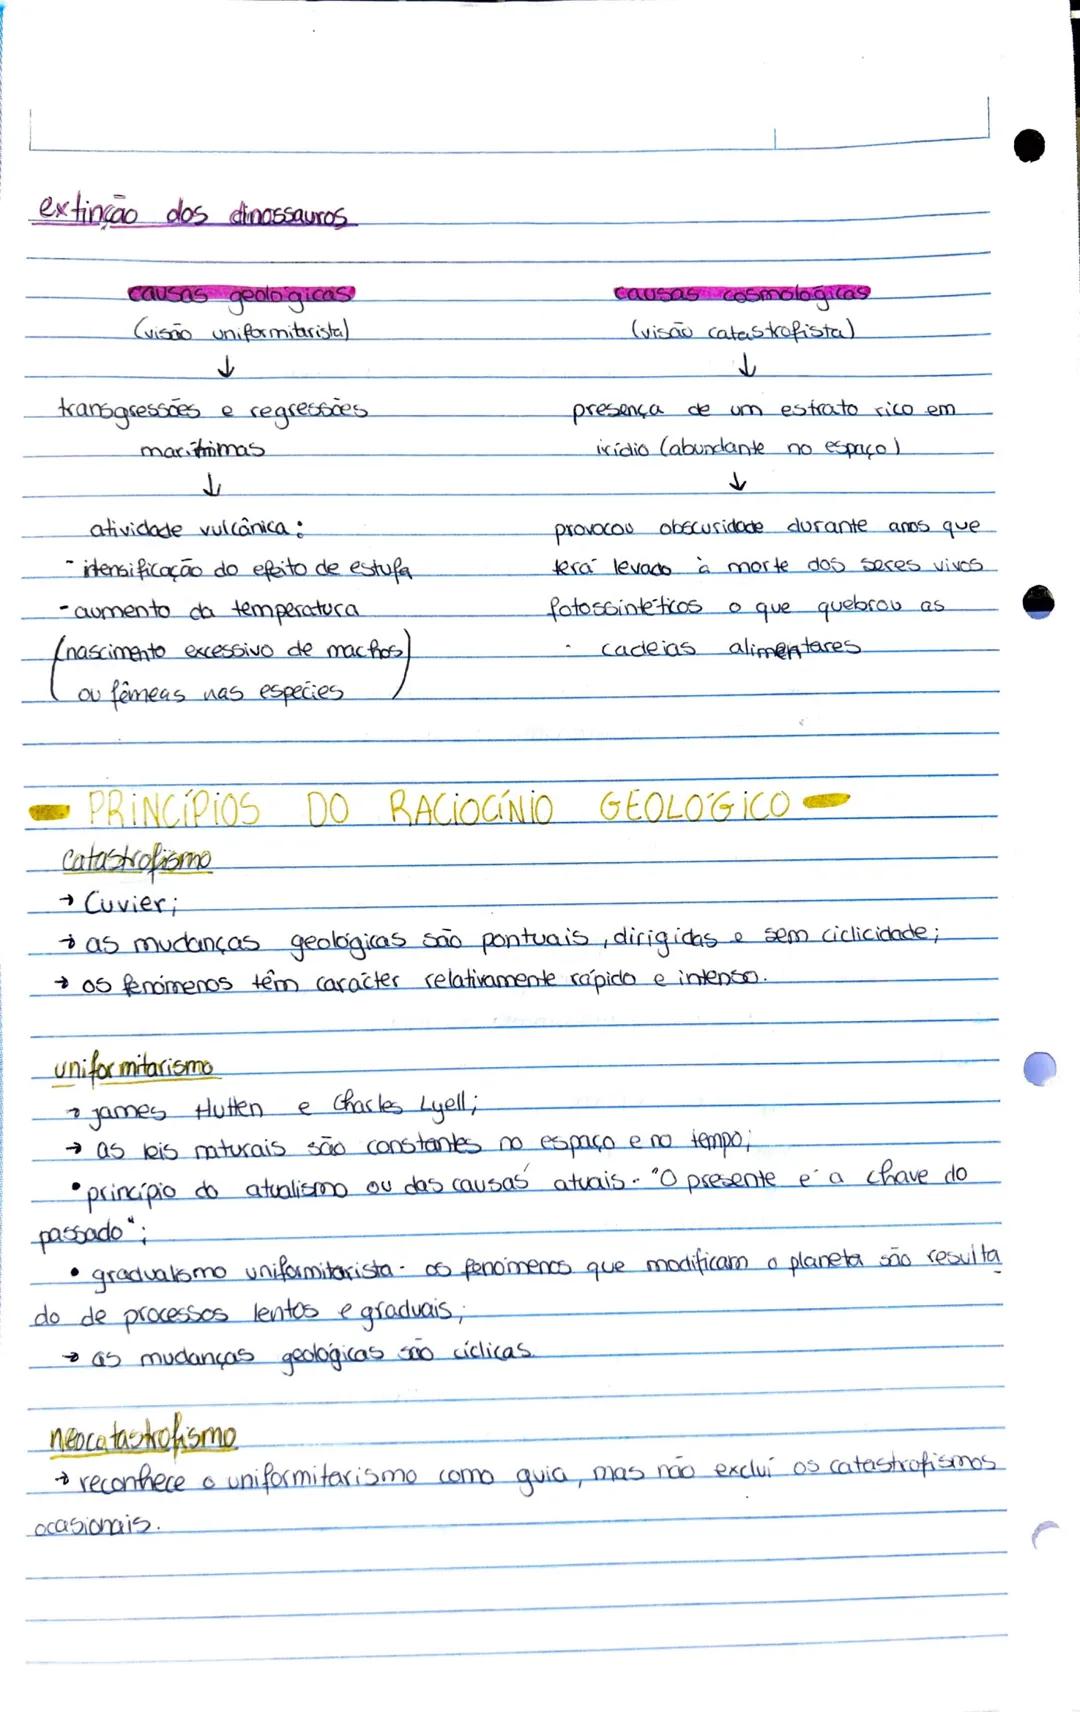 extinção dos dinossauros
causas geológicas
(visão uniformitarista)
↓
transgressões e regressões
marítimas
↓
atividade vulcânica:
- intensificação do efeito de estufa
- aumento da temperatura
(nascimento excessivo de machos
ou fêmeas nas espécies)
causas cosmológicas
(visão catastrofista)
↓
presença de um estrato rico em
irídio (abundante no espaço)
↓
provocou obscuridade durante anos que
terá levado à morte dos seres vivos
fotossintéticos o que quebrou as
cadeias alimentares
- PRINCÍPIOS DO RACIOCÍNIO GEOLÓGICO -
catastrofismo
→ Cuvier;
→ as mudanças geológicas são pontuais, dirigidas e sem ciclicidade;
→ os fenómenos têm carácter relativamente rápido e intenso.
uniformitarismo
→ james Hutten e Charles Lyell;
→ as leis naturais são constantes no espaço e no tempo;
• princípio do atualismo ou das causas atuais - "O presente é a chave do
passado";
• gradualismo uniformitarista - os fenómenos que modificam o planeta são resulta
do de processos lentos e graduais;
→ as mudanças geológicas são cíclicas.
neocatastrofismo
→ reconhece o uniformitarismo como guia, mas não excluí os catastrofismos
ocasionais.